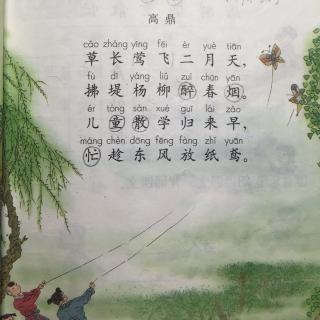 高鼎
cǎo zhǎng yīng fēi èr yuè tiān
草长莺飞二月天，
fú dī yáng liǔ zuì chūn yān
拂堤杨柳醉春烟。
ér tóng sàn xué guī lái zǎo
儿童散学归来早，
máng chèn dōng fēng fàng zhǐ yuān
忙趁东风放纸鸢。